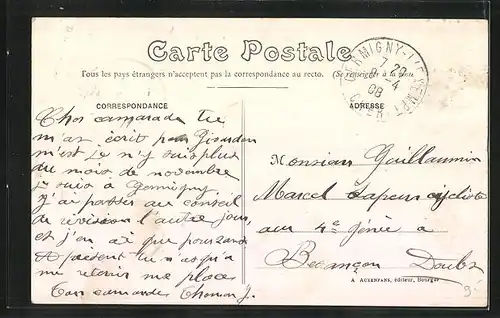 Carte Postale
Tous les pays étrangers n'acceptent pas la correspondance au recto. (Se renseigner à la
GERMIGNY-L'EXEMPT
7 20
4
08
CHER
CORRESPONDANCE
ADRESSE
Cher camarade tu
m'as écrit
m'est Je n'y suis plus
du mois de novembre
Je suis a Germigny
J'ai passer au conseil
de révision l'autre jour
et j'en ai que pour 2 ans
A présent tu n'as qu'a
me retenir me place
Ton camarade Thomas J.
Monsieur Guillaumin
Marcel sapeur cycliste
au 4e Génie a
Besançon Doubs
A AUXENFANS, éditeur, Bourges